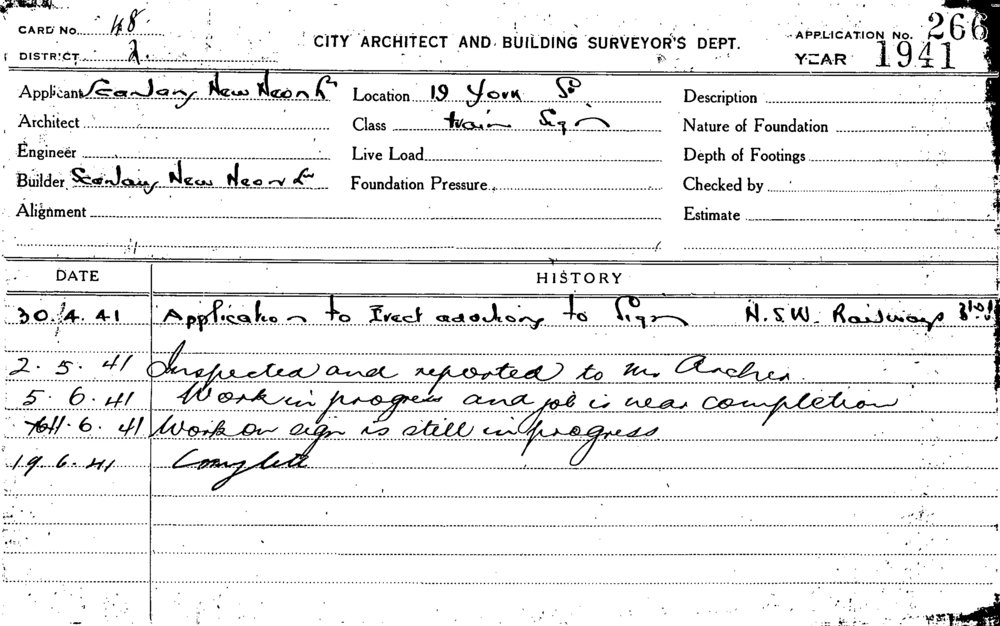 CARD No. 48
DISTRICT 2.
CITY ARCHITECT AND BUILDING SURVEYOR'S DEPT.
APPLICATION No. 266
YEAR 1941
Applicant New Neon
Location 19 York St
Description
Architect
Class train Sign
Nature of Foundation
Engineer
Live Load
Depth of Footings
Builder New Neon
Foundation Pressure
Checked by
Alignment
Estimate
DATE HISTORY
30.4.41 Application to Erect additions to Sign N.S.W. Railways
2.5.41 Inspected and reported to Mr Archer.
5.6.41 Work in progress and job is near completion
11.6.41 Work on sign is still in progress
19.6.41 Complete